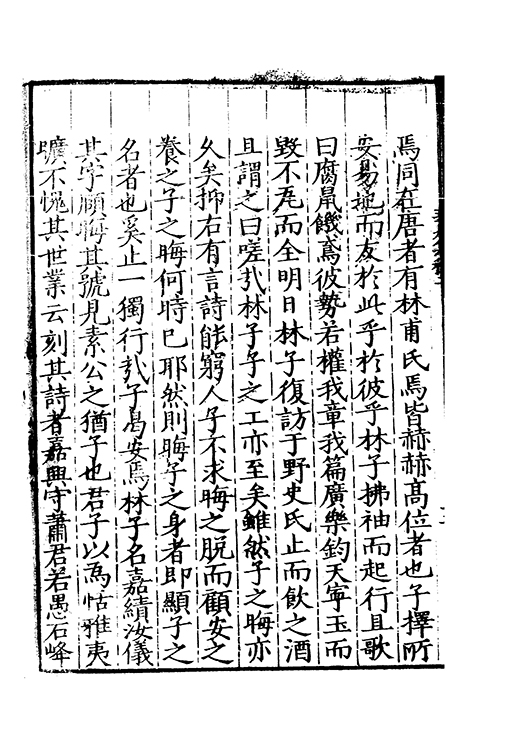 焉同在唐者有林甫氏焉皆赫赫高位者也子擇所
安易地而友於此乎於彼乎林子拂袖而起行且歌
曰腐鼠餓鳶彼勢若權我章我篇廣樂鈞天寧玉而
毀不瓦而全明日林子復訪于野史氏止而飲之酒
且謂之曰嗟哉林子子之工亦至矣雖然子之晦亦
久矣抑右有言詩能窮人子不求晦之脫而顧安之
養之子之晦何時已耶然則晦子之身者即顯子之
名者也奚止一獨行哉子曷安焉林子名嘉績汝儀
其字願晦其號見素公之猶子也君子以為恬雅夷
曠不愧其世業云刻其詩者嘉興守蕭君若愚石峰